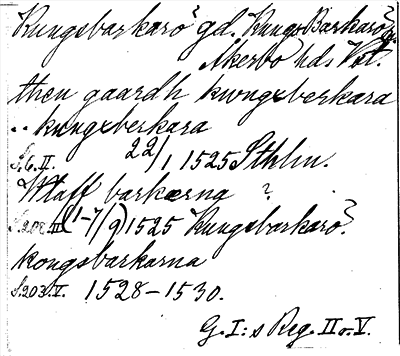 Kungsbarkarö gd. Kungs Barkarö
Åkerbo hd. Vst.
then gaardh kwngxberkara
.. kungxberkara
S. 6. II. 22/1 1525 Sthlm.
Utaff barkærna ?
S. 208. III (1-7/9) 1525 Kungsbarkarö?
kongsbarkarna
S. 203. V. 1528-1530.
G. I:s Reg. II o. V.